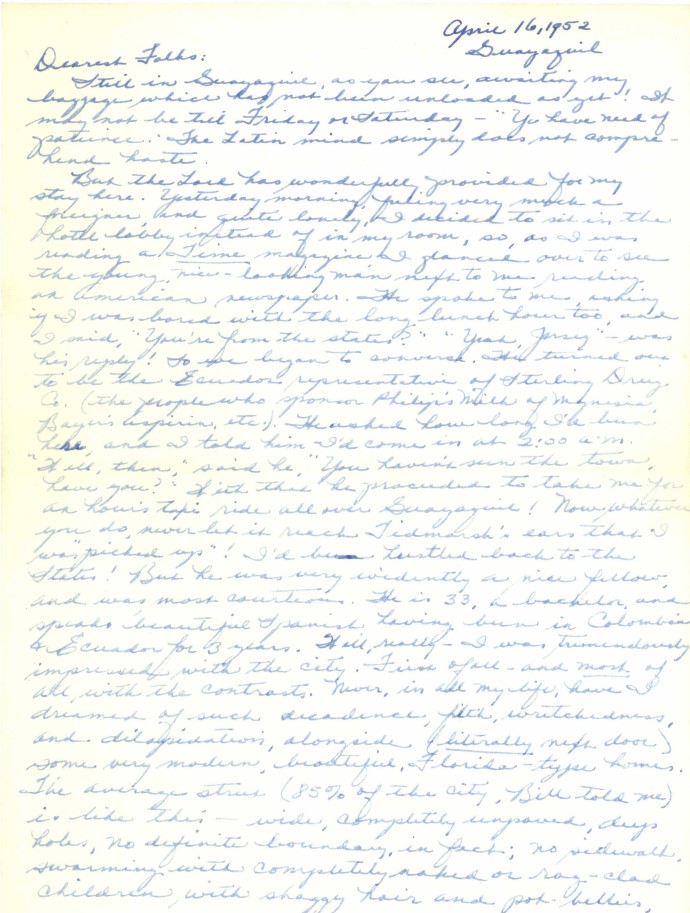 April 16, 1952
Guayaquil
Dearest Folks:
Still in Guayaquil, as you see, awaiting my
baggage which has not been unloaded as yet! It
may not be till Friday or Saturday - "Ye have need of
patience." The Latin mind simply does not compre-
hend haste.
But the Lord has wonderfully provided for my
stay here. Yesterday morning, feeling very much a
foreigner, and quite lonely, I decided to sit in the
hotel lobby instead of in my room, so, as I was
reading a Time magazine I glanced over to see
the young, nice-looking man next to me reading
an American newspaper. He spoke to me, asking
if I was bored with the long lunch hour too, and
I said, "You're from the states?" "Yeah, Jersey" - was
his reply! So we began to converse. He turned out
to be the Ecuador representative of Sterling Drug
Co. (the people who sponsor Philip's Milk of Magnesia,
Bayer's aspirin, etc.). He asked how long I'd been
here, and I told him I'd come in at 2:00 a.m.
"Well, then," said he, "You haven't seen the town,
have you?" With that he proceeded to take me for
an hour's taxi ride all over Guayaquil! Now, whatever
you do, never let it reach Tidmarsh's ears that I
was "picked up"! I'd be hustled back to the
States! But he was very evidently a nice fellow,
and was most courteous. He is 33, a bachelor, and
speaks beautiful Spanish having been in Colombia
& Ecuador for 3 years. Well, really - I was tremendously
impressed with the city. First of all - and most of
all, with the contrasts. Never, in all my life, have I
dreamed of such decadence, filth, wretchedness,
and dilapidation, alongside (literally next door)
some very modern, beautiful, Florida-type homes.
The average street (85% of the city, Bill told me)
is like this - wide, completely unpaved, deep
holes, no definite boundary, in fact; no sidewalk,
swarming with completely naked or rag-clad
children with shaggy hair and pot-bellies,